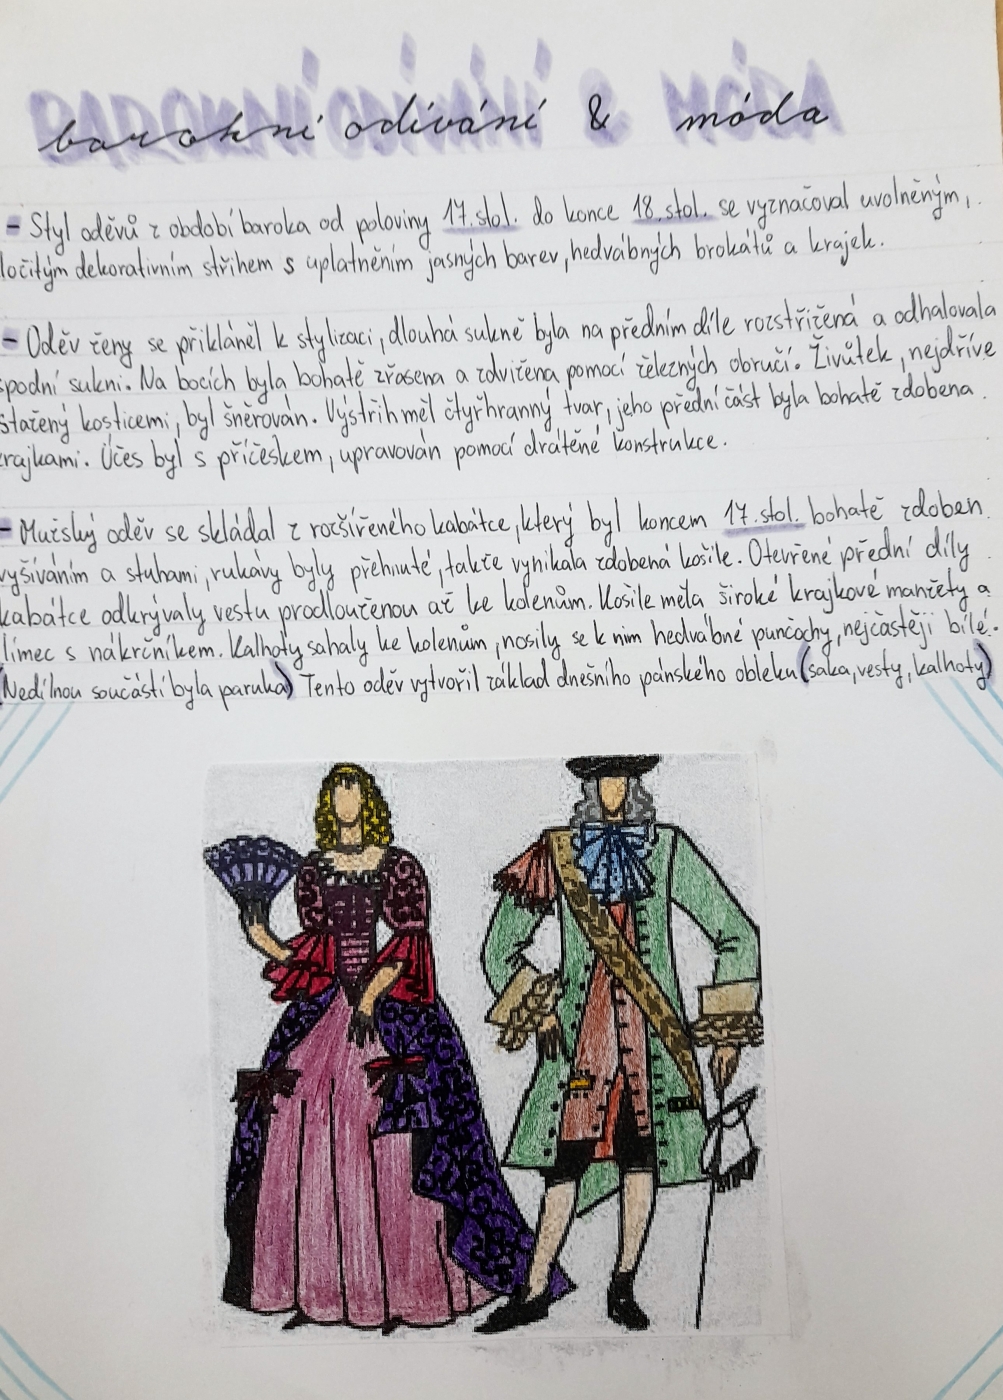 BAROKNÍ ODÍVÁNÍ & MÓDA
barokní odívání & móda
- Styl oděvů z období baroka od poloviny 17. stol. do konce 18. stol. se vyznačoval uvolněným,
ločitým dekorativním střihem s uplatněním jasných barev, hedvábných brokátů a krajek.
- Oděv ženy se přikláněl k stylizaci, dlouhá sukně byla na předním díle rozstřižená a odhalovala
spodní sukni. Na bocích byla bohatě zřasena a zdvižena pomocí železných obručí. Živůtek, nejdříve
stažený kosticemi, byl šněrován. Výstřih měl čtyřhranný tvar, jeho přední část byla bohatě zdobena
krajkami. Účes byl s příčeskem, upravován pomocí drátěné konstrukce.
- Mužský oděv se skládal z rozšířeného kabátce, který byl koncem 17. stol. bohatě zdoben
vyšíváním a stuhami, rukávy byly přehnuté, takže vynikala zdobená košile. Otevřené přední díly
kabátce odkrývaly vestu prodlouženou až ke kolenům. Košile měla široké krajkové manžety a
límec s nákrčníkem. Kalhoty sahaly ke kolenům, nosily se k nim hedvábné punčochy, nejčastěji bílé.
(Nedílnou součástí byla paruka) Tento oděv vytvořil základ dnešního pánského obleku (saka, vesty, kalhoty)